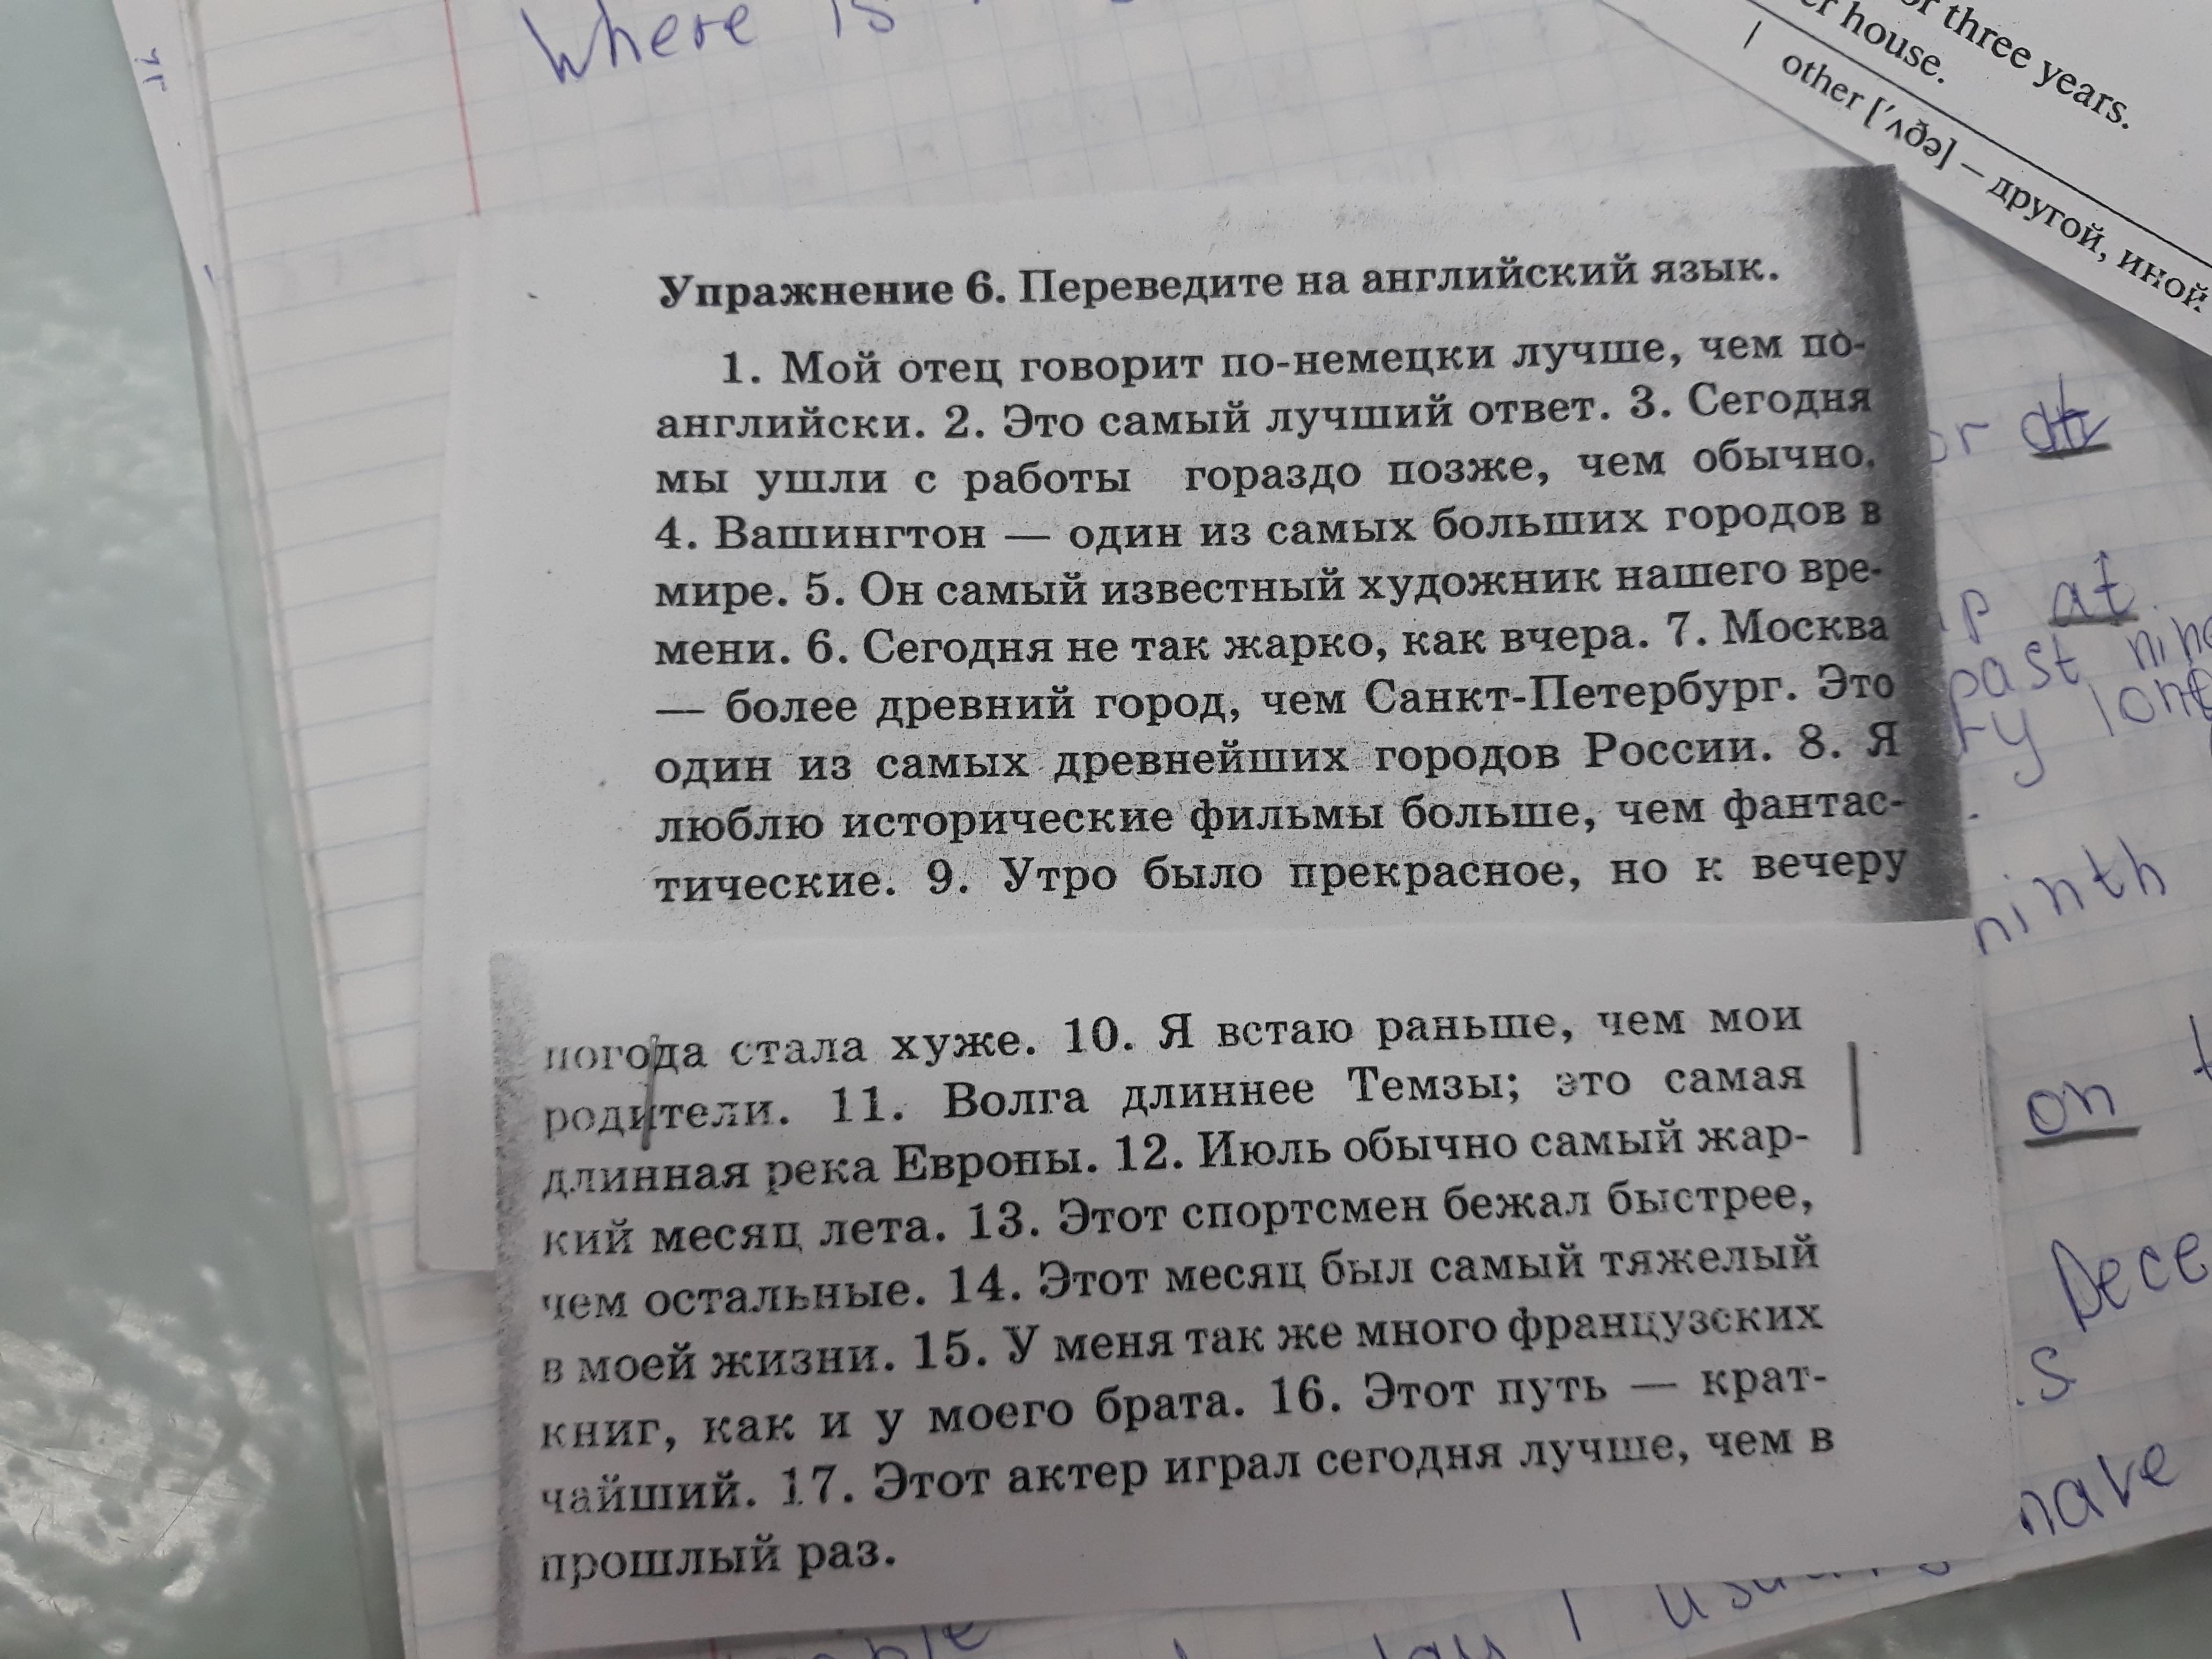 Where is
or three years.
er house.
other ['ʌðə] — другой, иной
Упражнение 6. Переведите на английский язык.
1. Мой отец говорит по-немецки лучше, чем по-
английски. 2. Это самый лучший ответ. 3. Сегодня
мы ушли с работы гораздо позже, чем обычно.
4. Вашингтон — один из самых больших городов в
мире. 5. Он самый известный художник нашего вре-
мени. 6. Сегодня не так жарко, как вчера. 7. Москва
— более древний город, чем Санкт-Петербург. Это
один из самых древнейших городов России. 8. Я
люблю исторические фильмы больше, чем фантас-
тические. 9. Утро было прекрасное, но к вечеру
погода стала хуже. 10. Я встаю раньше, чем мои
родители. 11. Волга длиннее Темзы; это самая
длинная река Европы. 12. Июль обычно самый жар-
кий месяц лета. 13. Этот спортсмен бежал быстрее,
чем остальные. 14. Этот месяц был самый тяжелый
в моей жизни. 15. У меня так же много французских
книг, как и у моего брата. 16. Этот путь — крат-
чайший. 17. Этот актер играл сегодня лучше, чем в
прошлый раз.
at
past
ninth
on
Dece
have